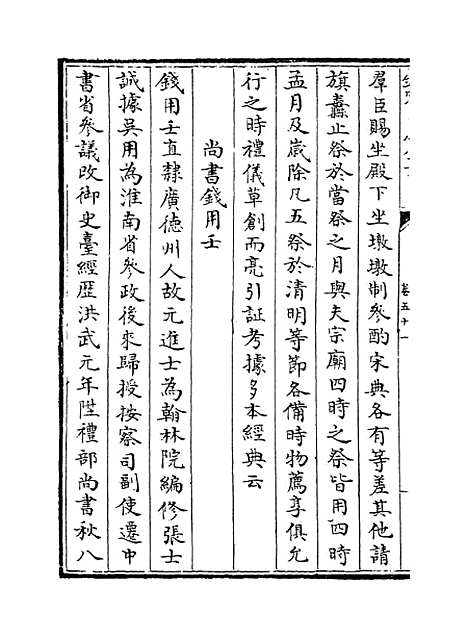 羣臣賜坐殿下坐墩墩制參酌宋典各有等差其他請
旗纛止祭於當祭之月與夫宗廟四時之祭皆用四時
孟月及歲除凡五祭於清明等節各備時物薦享俱允
行之時禮儀草創而亮引証考據多本經典云
尚書錢用壬
錢用壬直隸廣德州人故元進士為翰林院編修張士
誠據吳用為淮南省參政後來歸授按察司副使遷中
書省參議改御史臺經歷洪武元年陞禮部尚書秋八
卷五十一